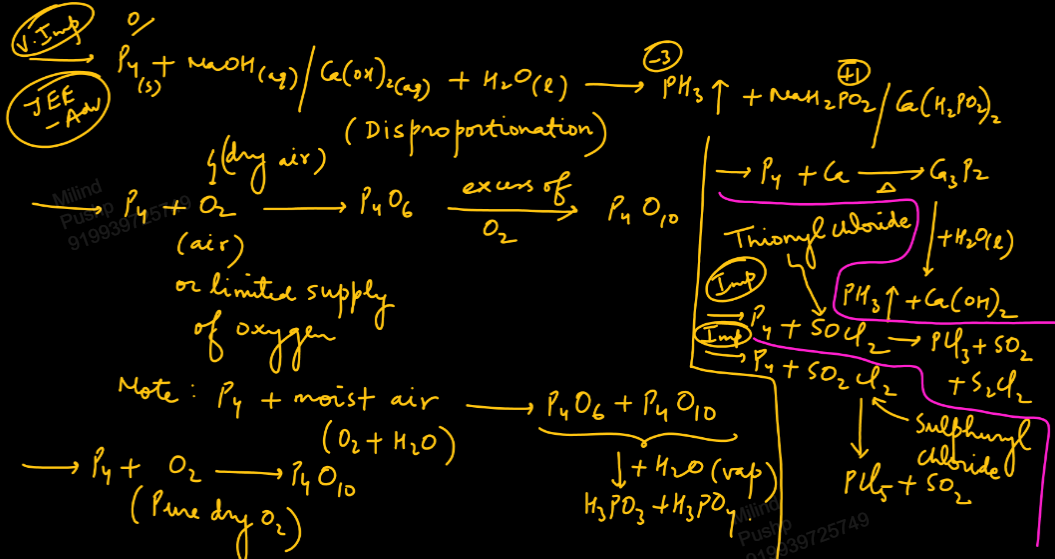 V. Imp
0
→ P4(s) + NaOH(aq)/Ca(OH)2(aq) + H2O(l) → PH3↑ + NaH2PO2/Ca(H2PO2)2
-3
+1
JEE
- Adv
(Disproportionation)
(dry air)
→ P4 + O2 → P4O6 excess of O2 → P4O10
(air)
or limited supply
of oxygen
Note: P4 + moist air → P4O6 + P4O10
(O2 + H2O)
↓ + H2O (vap)
H3PO3 + H3PO4.
→ P4 + O2 → P4O10
(Pure dry O2)
→ P4 + Ca →Δ Ca3P2
↓ +H2O(l)
PH3↑ + Ca(OH)2
Thionyl chloride
Imp
→ P4 + SOCl2 → PCl3 + SO2
+ S2Cl2
Imp
→ P4 + SO2Cl2
Sulphuryl
chloride
↓
PCl5 + SO2
Milind
Pushp
919939725749
Milind
Pushp
919939725749